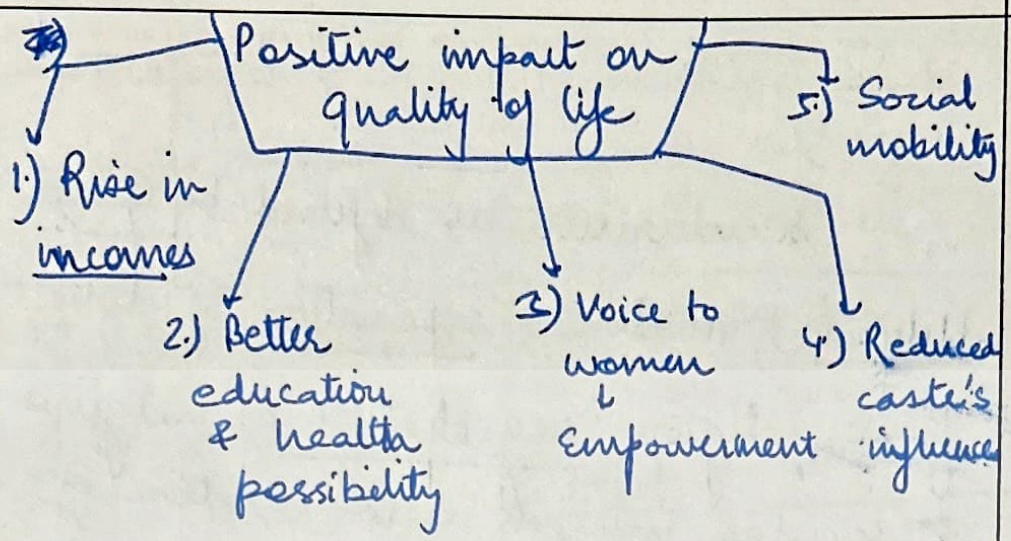 Positive impact on
quality of life
1.) Rise in
incomes
2.) Better
education
& health
possibility
3.) Voice to
women
↓
Empowerment
4.) Reduced
caste's
influence
5.) Social
mobility